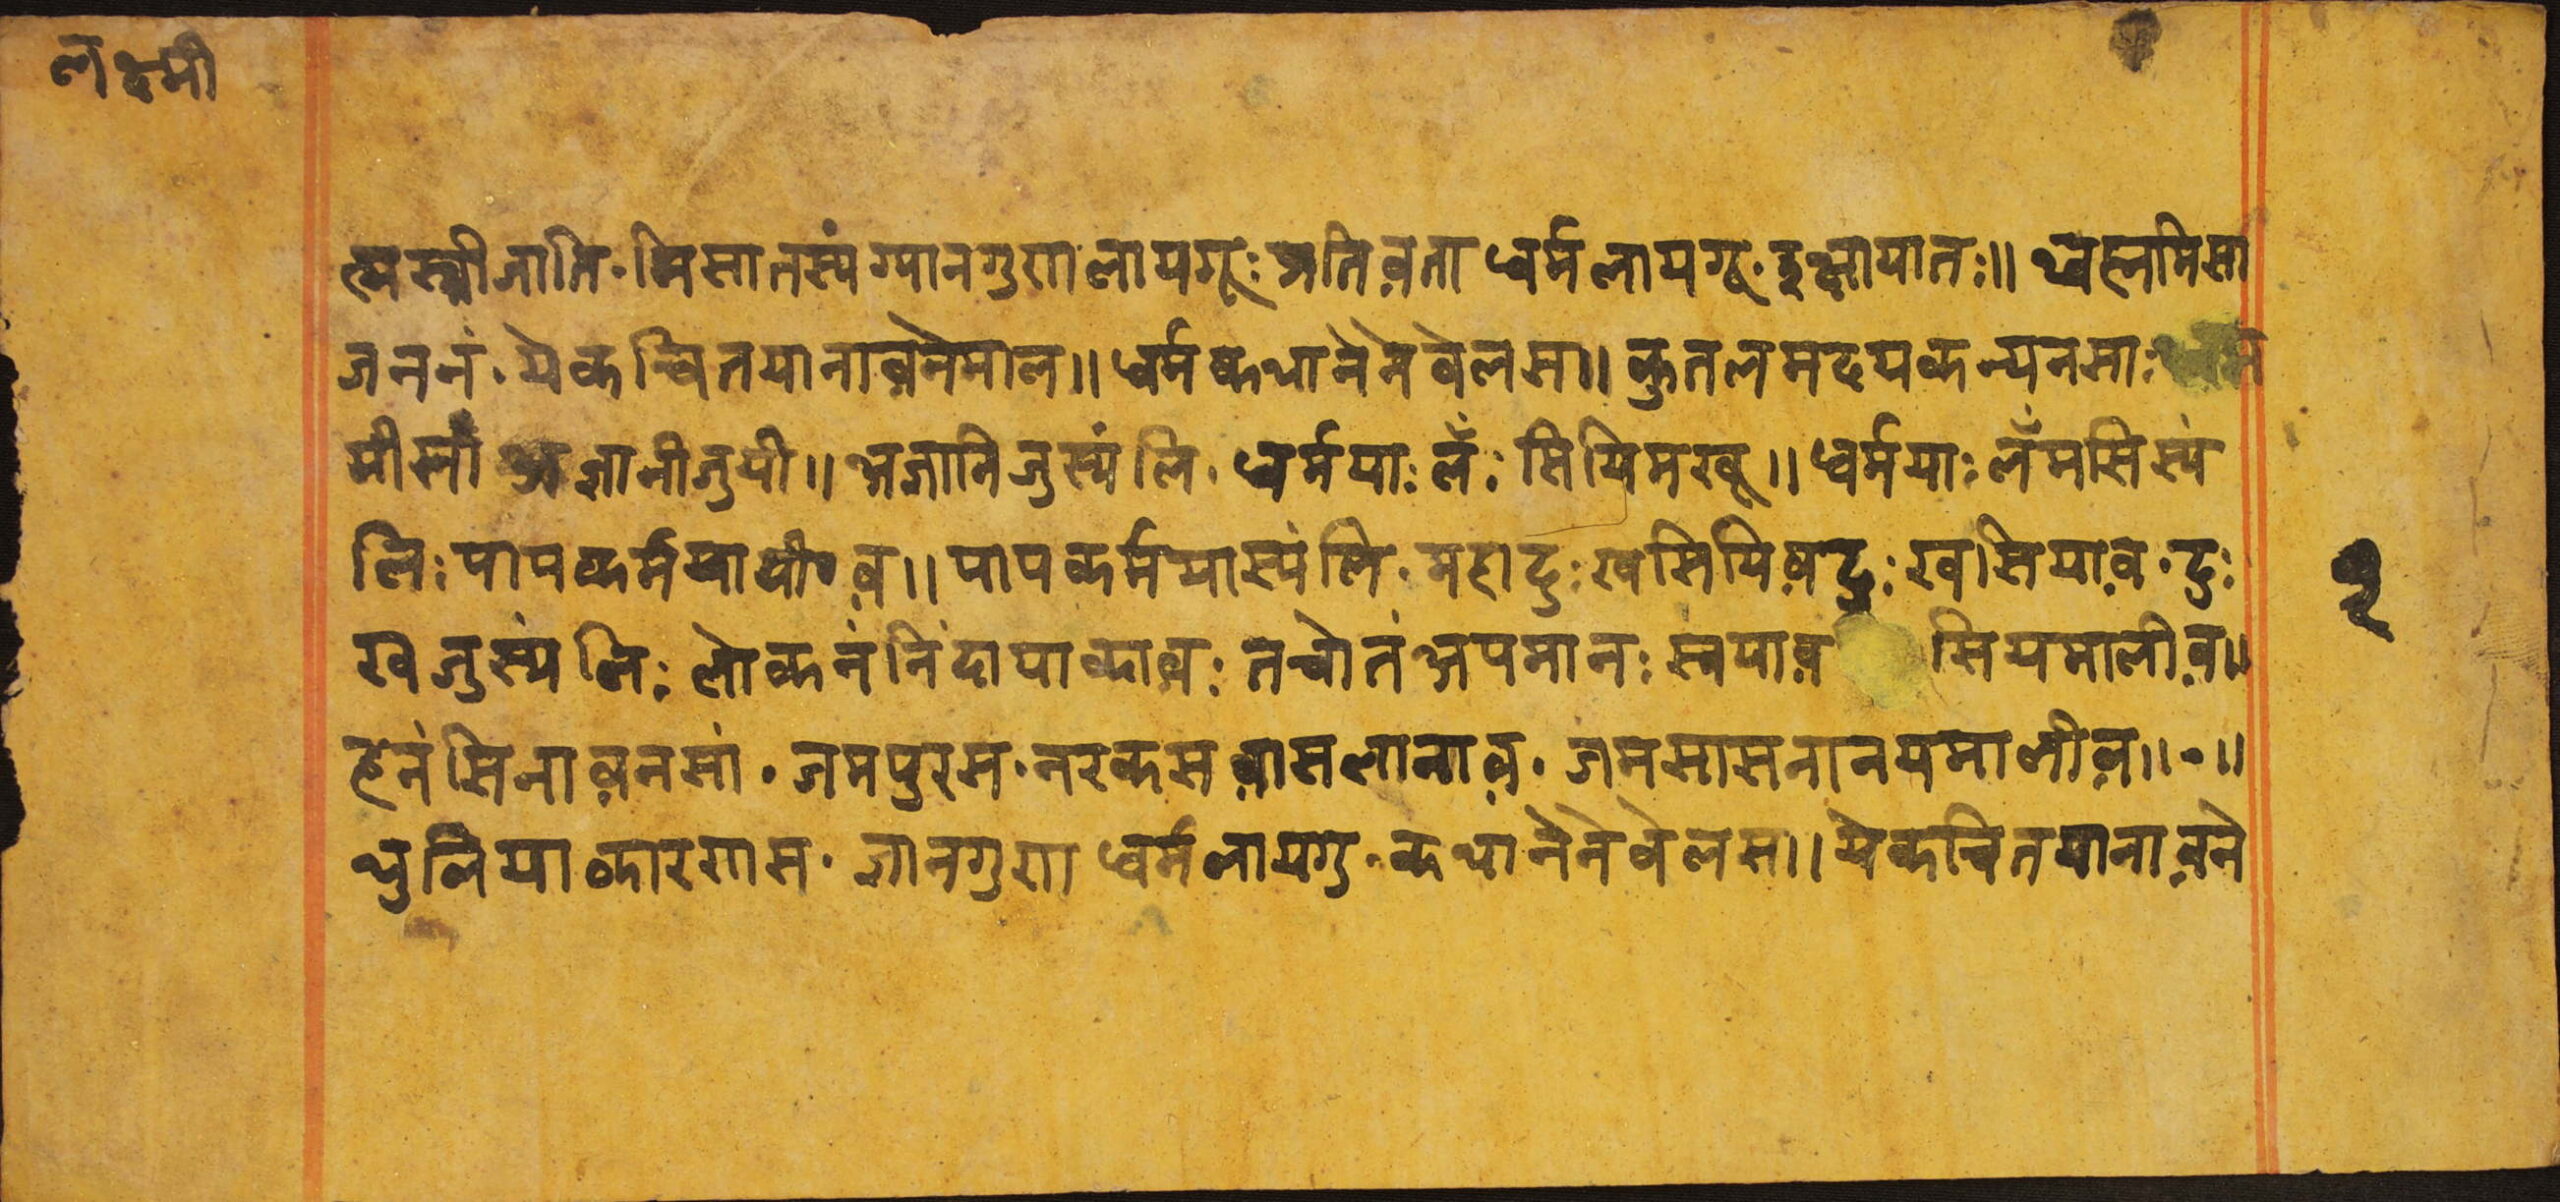 लक्ष्मी
त्मस्त्रीजाति॰ मिसातस्यं ग्यानगुणलायगूः प्रतिव्रता धर्मलायगू॰ दुष्वायातः॥ थ्वह्नमिसा
जननं॰ येकचितयानाव़नेमाल॥ धर्मकथानेनेवेलस॥ कुतलमदयकन्यनसाः
मीसां अज्ञानीजुयी॥ अज्ञानिजुस्यंलि॰ धर्मयाः लँः सियिमखू॥ धर्मयाः लँमसिस्यं
लिः पापकर्मयायीव़॥ पापकर्मयास्यंलि॰ महादुःखसियिव़ दुःखसियाव़॰ दुः
खजुस्यंलिः लोकनं निंदायाकाव़ः तचोतं अपमानः स्वयाव़ सियमालीव़॥
हेनं सिनाव़नसां॰ जमपुरस॰ नरकस व़ासलानाव़॰ जमसासनानयमालीव़॥॰॥
थुलियाकारणस॰ ज्ञानगुण धर्मलायगु॰ कथानेनेवेलस॥ येकचितयानाव़ने
२